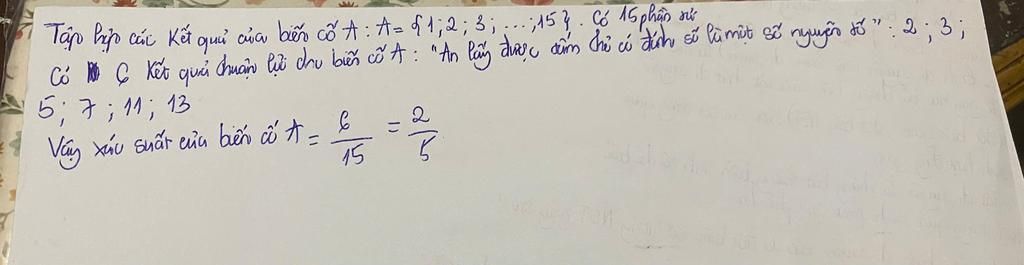 Tập hợp các kết quả của biến cố A : A = {1; 2; 3; ...; 15}. Có 15 phần tử
Có 6 kết quả thuận lợi cho biến cố A : "An lấy được tấm thẻ có đánh số là một số nguyên tố" : 2 ; 3 ;
5 ; 7 ; 11 ; 13
Vậy xác suất của biến cố A = 6/15 = 2/5